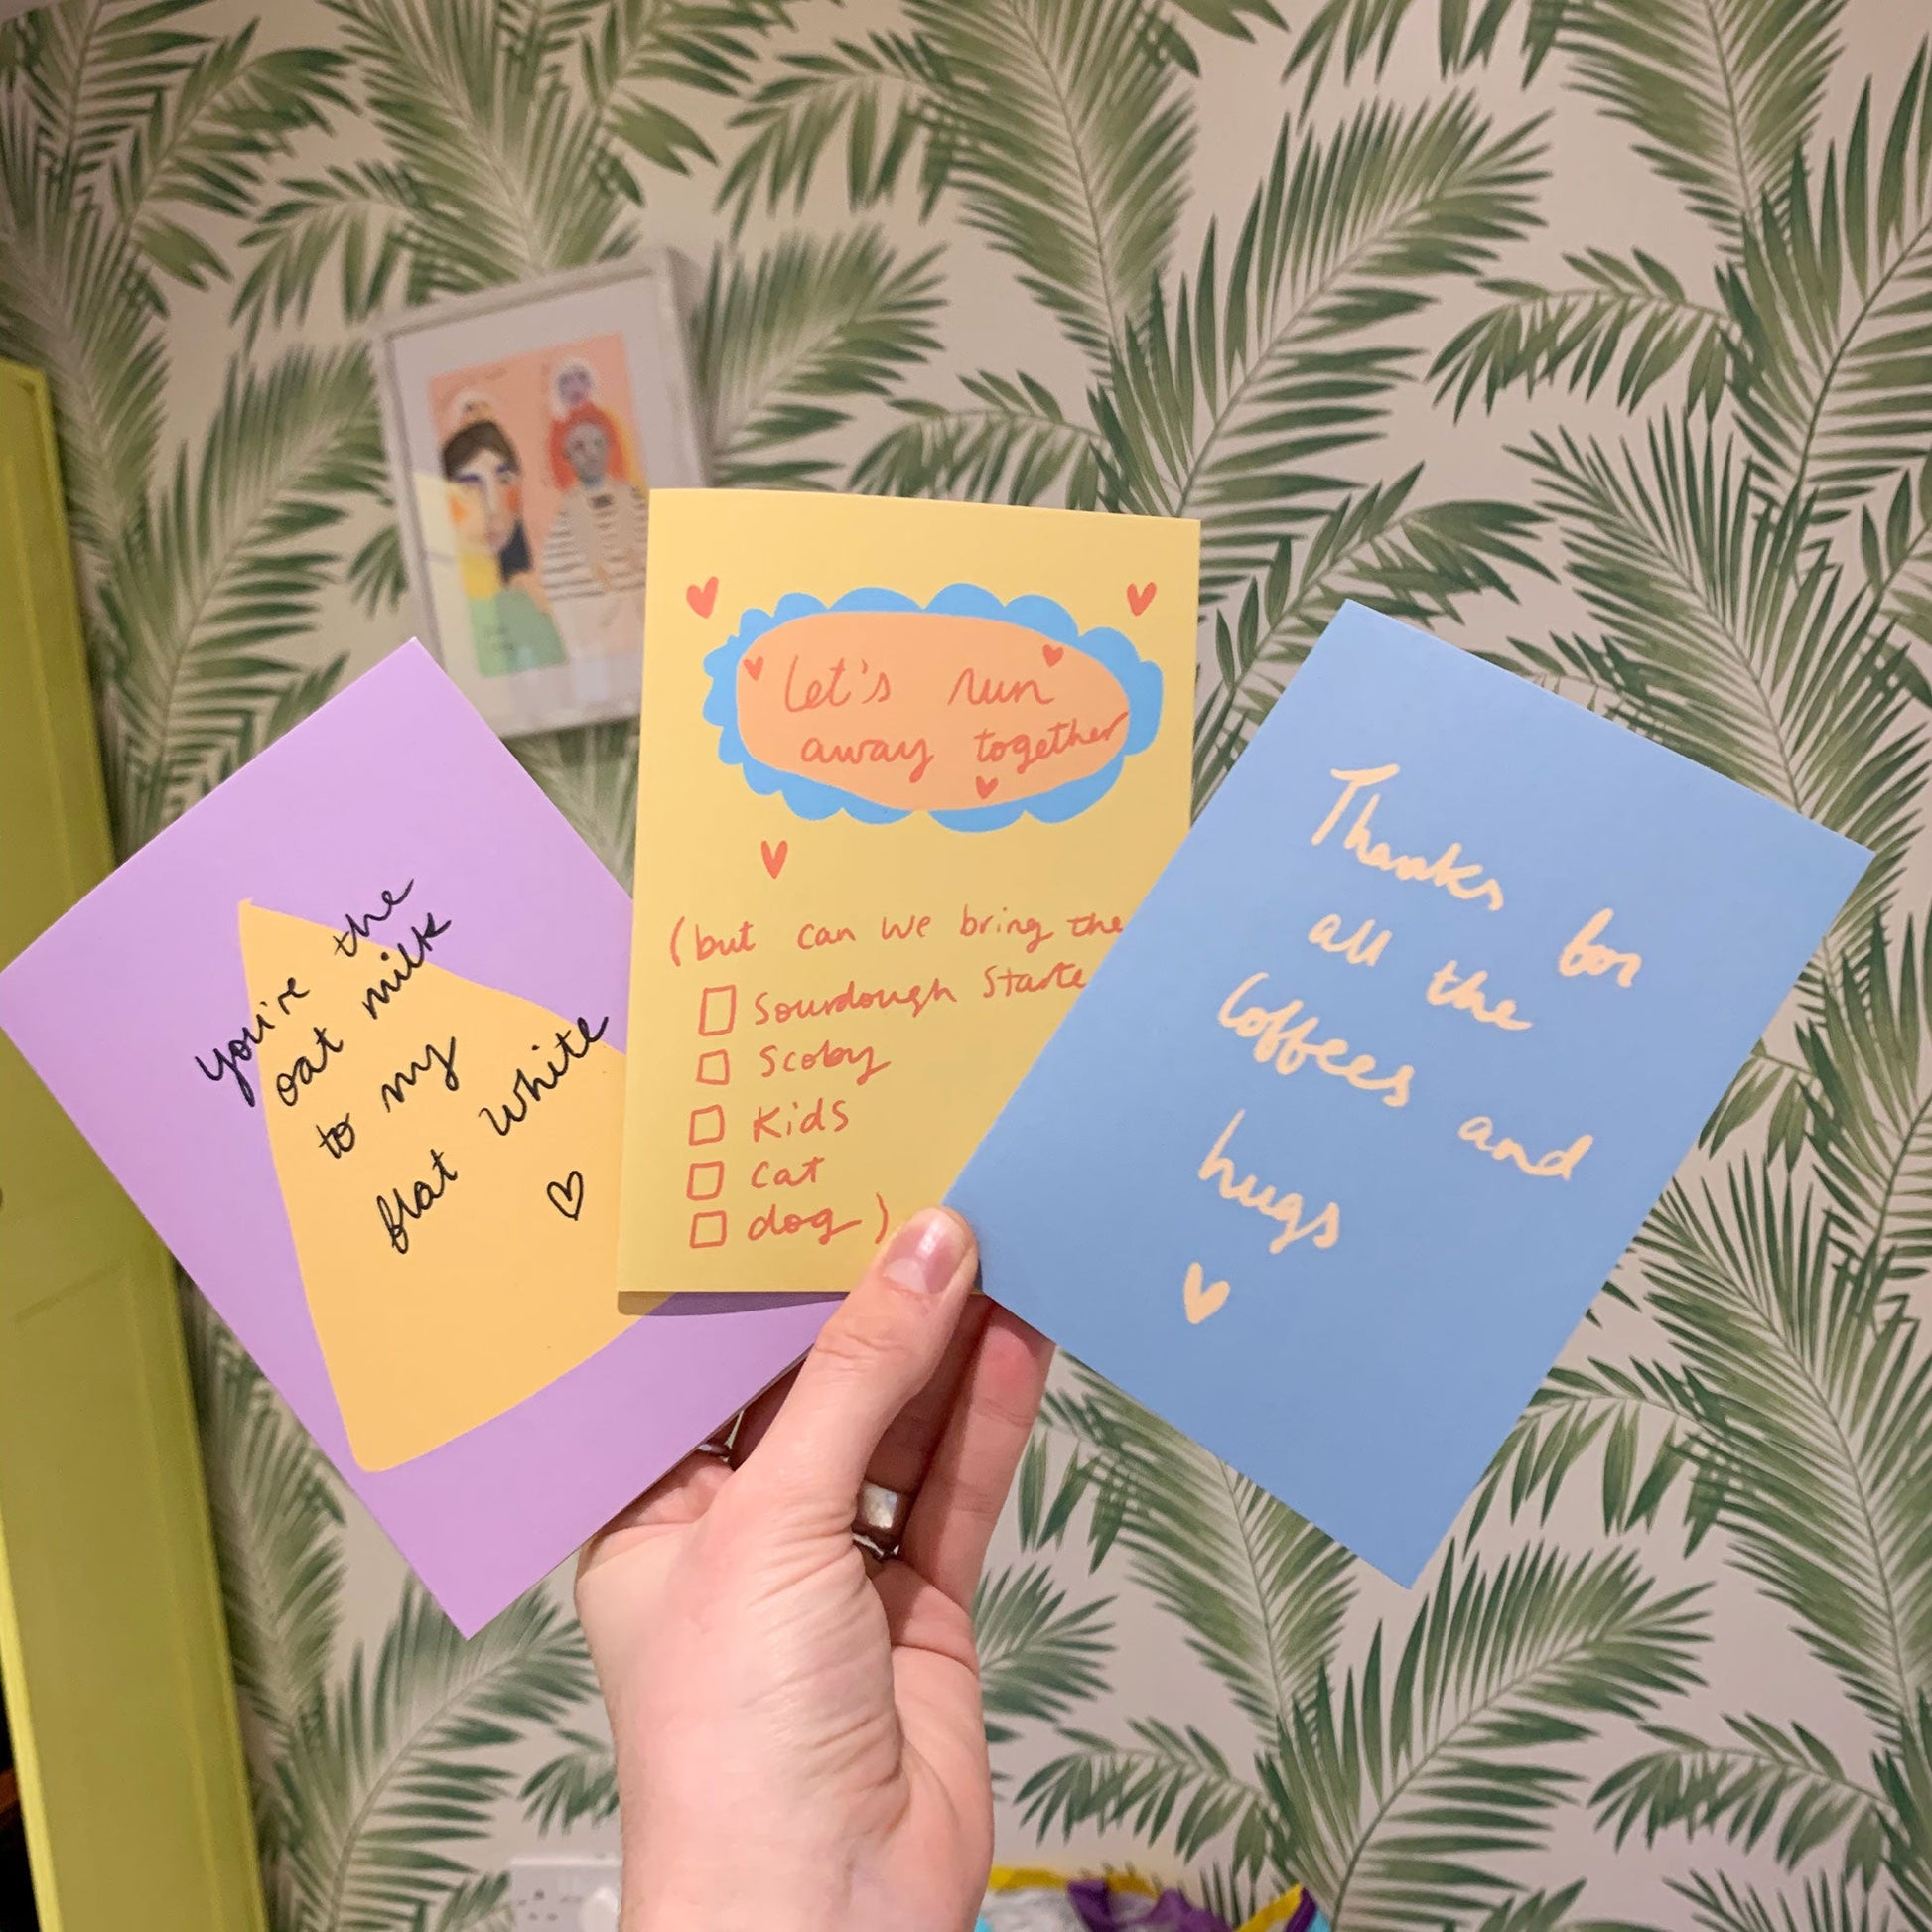 you're the
oat milk
to my
flat white
Let's run
away together
(but can we bring the
Sourdough Starte
Scoby
Kids
Cat
dog)
Thanks for
all the
Coffees and
hugs